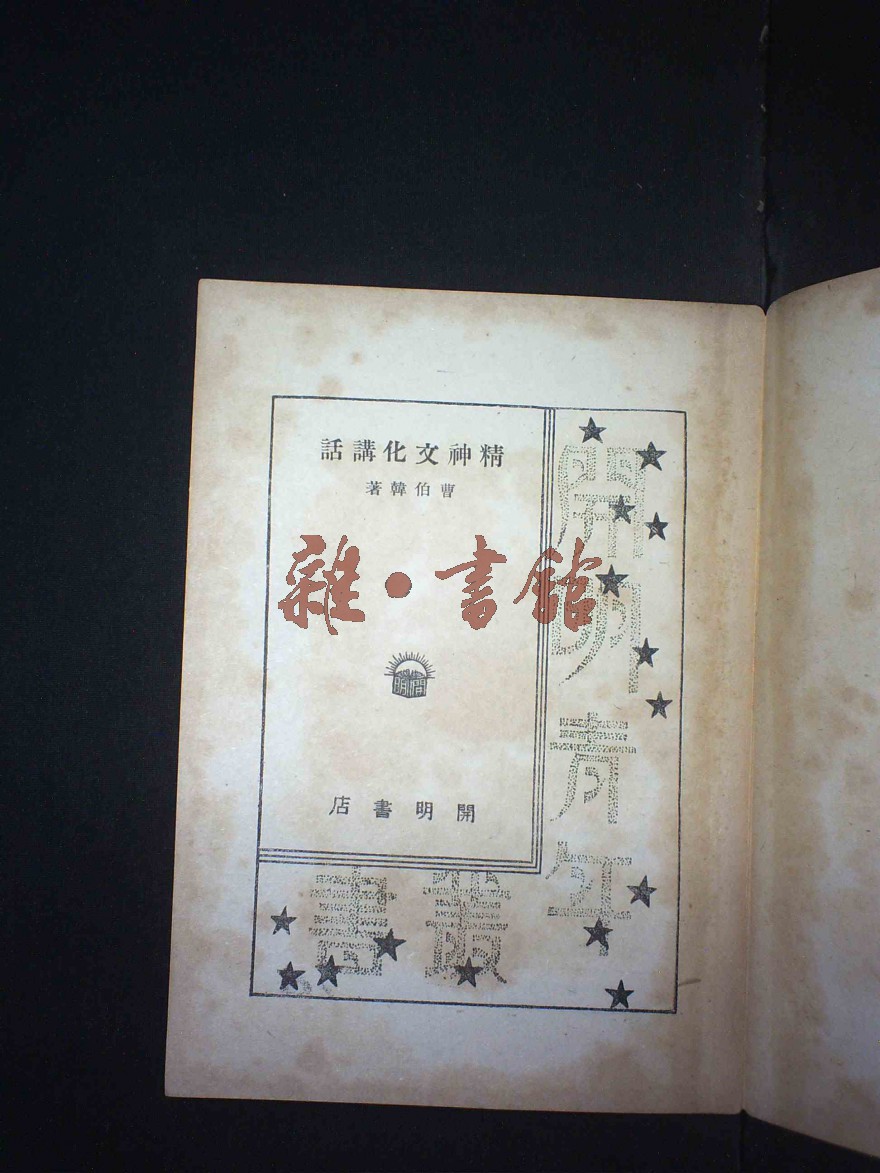 精神文化講話
曹伯韓著
雜·書館
開明
開明書店
開明青年
叢書